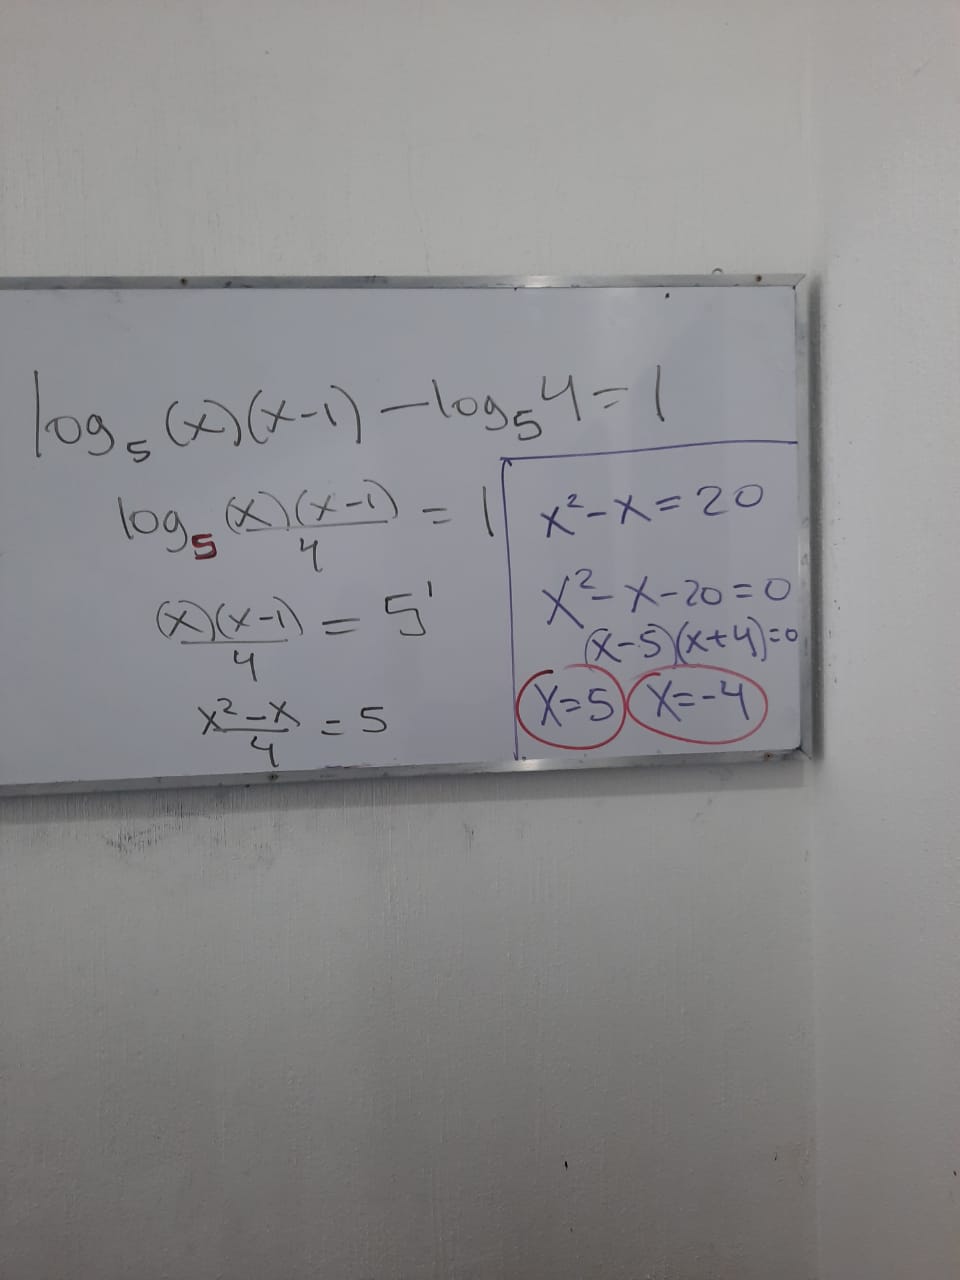 log₅ (x)(x-1) - log₅ 4 = 1
log₅ (x)(x-1)/4 = 1
(x)(x-1)/4 = 5¹
x²-x/4 = 5
x²-x = 20
x²-x-20=0
(x-5)(x+4)=0
x=5 x=-4